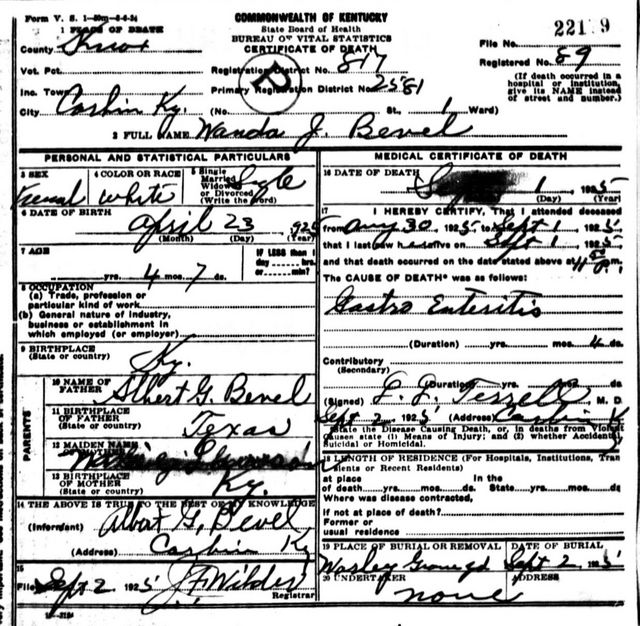 Form V. S. 1-50m-6-4-24
COMMONWEALTH OF KENTUCKY
State Board of Health
BUREAU OF VITAL STATISTICS
CERTIFICATE OF DEATH
221 9
1 PLACE OF DEATH
County Knox
File No.
Registered No. 89
Vot. Pct.
Registration District No. 817
Inc. Town
Primary Registration District No. 2581
(If death occurred in a hospital or institution, give its NAME instead of street and number.)
City Corbin Ky. (No. St., 1 Ward)
2 FULL NAME Wanda J. Bevel
PERSONAL AND STATISTICAL PARTICULARS
3 SEX
Femal
4 COLOR OR RACE
White
5 Single
Married
Widowed
or Divorced
(Write the word)
Single
6 DATE OF BIRTH
April 23 1925
(Month) (Day) (Year)
7 AGE
IF LESS than 1 day hrs. or min?
yrs. 4 mos. 7 ds.
8 OCCUPATION
(a) Trade, profession or
particular kind of work
(b) General nature of industry,
business or establishment in
which employed (or employer)
9 BIRTHPLACE
(State or country)
Ky.
PARENTS
10 NAME OF FATHER
Albert G. Bevel
11 BIRTHPLACE OF FATHER
(State or country)
Texas
12 MAIDEN NAME OF MOTHER
13 BIRTHPLACE OF MOTHER
(State or country)
Ky.
14 THE ABOVE IS TRUE TO THE BEST OF MY KNOWLEDGE
(Informant) Albert G, Bevel
(Address) Corbin Ky
15
Filed Sept 2 1925 J.F. Wilder
Registrar
MEDICAL CERTIFICATE OF DEATH
16 DATE OF DEATH
1 1925
(Day) (Year)
17 I HEREBY CERTIFY, That I attended deceased
from Aug 30 1925 to Sept 1 1925
that I last saw h alive on Sept 1 1925
and that death occurred on the date stated above at 11 P.
The CAUSE OF DEATH* was as follows:
Gastro Enteritis
(Duration) yrs. mos. 4 ds.
Contributory
(Secondary)
(Duration) yrs. mos. ds.
(Signed) L. L. Terrell M. D.
Sept 2 1925 (Address) Corbin K
State the Disease Causing Death, or, in deaths from Violent
Causes state (1) Means of Injury; and (2) whether Accidental,
Suicidal or Homicidal.
18 LENGTH OF RESIDENCE (For Hospitals, Institutions, Tran
sients or Recent Residents)
at place of death yrs. mos. ds. In the State yrs. mos. ds.
Where was disease contracted,
if not at place of death?
Former or
usual residence
19 PLACE OF BURIAL OR REMOVAL
DATE OF BURIAL
Sept 2 1925
20 UNDERTAKER
ADDRESS
none